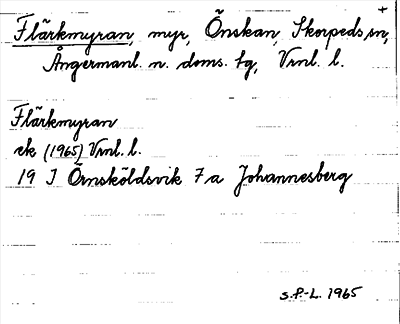 +
Flärkmyran, myr, Önskan, Skorpeds sn,
Ångermanl. n. doms. tg, Vrnl. l.
Flärkmyran
ek (1965) Vrnl. l.
19 J Örnsköldsvik 7 a Johannesberg
S.P.-L. 1965